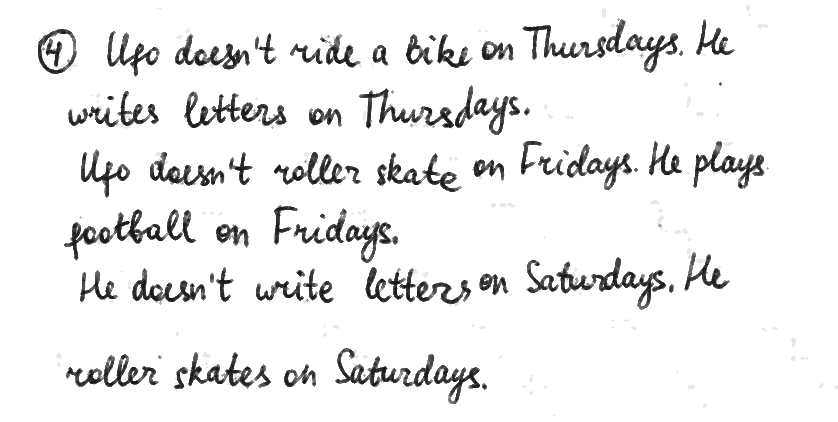 ④ Ufo doesn't ride a bike on Thursdays. He
writes letters on Thursdays.
Ufo doesn't roller skate on Fridays. He plays
football on Fridays.
He doesn't write letters on Saturdays. He
roller skates on Saturdays.